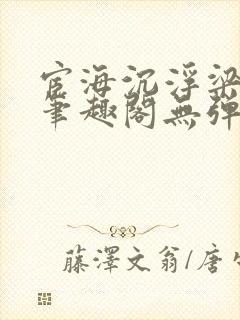 宦海沉浮梁
笔趣阁無弹
藤澤文翁/唐